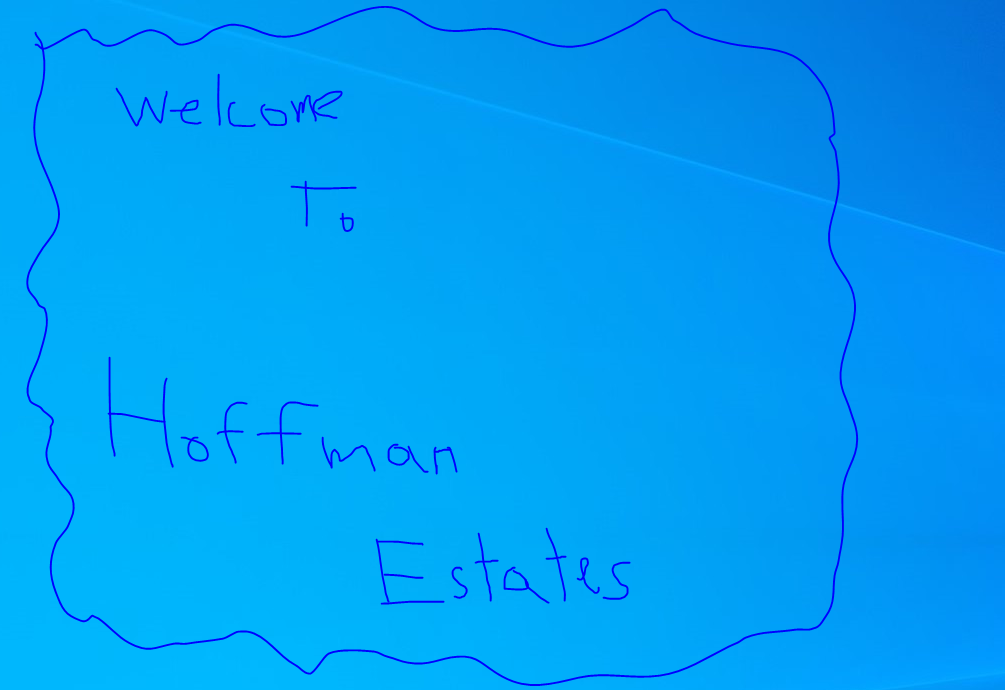 Welcome
To
Hoffman
Estates